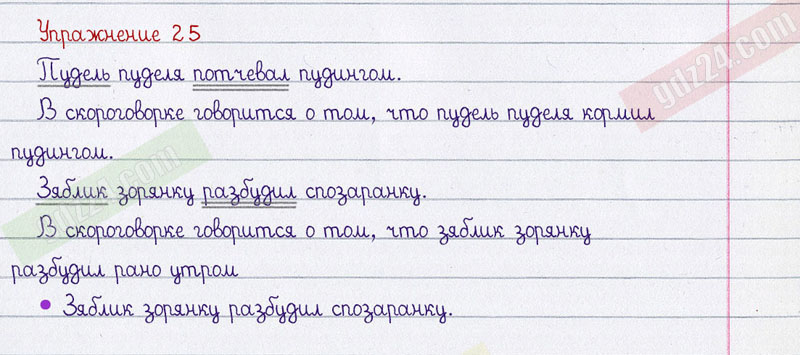 Упражнение 25
Пудель пуделя потчевал пудингом.
В скороговорке говорится о том, что пудель пуделя кормил
пудингом.
Зяблик зорянку разбудил спозаранку.
В скороговорке говорится о том, что зяблик зорянку
разбудил рано утром
• Зяблик зорянку разбудил спозаранку.
gdz24.com
gdz24.com